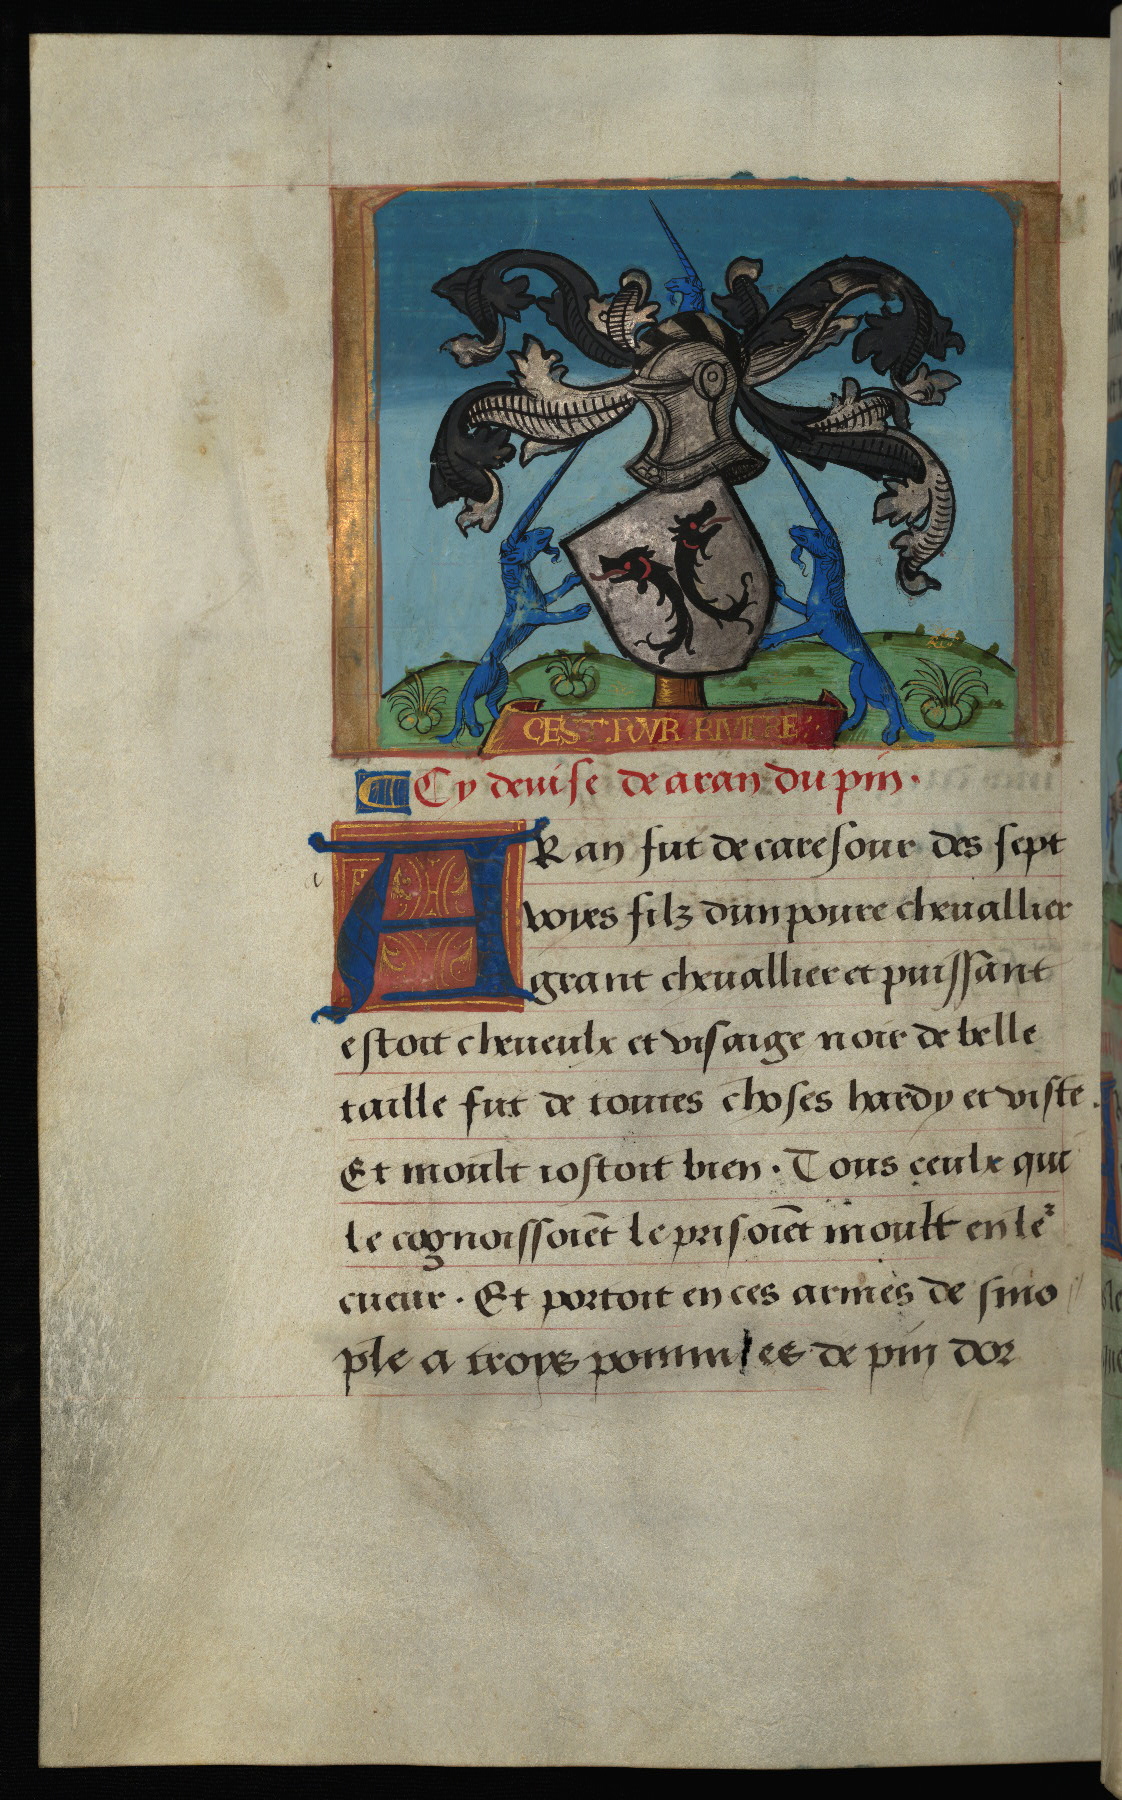 CEST POVR RIVIERE
Cy deuise de aran du pin.
ARan fut de carefour des sept
voyes filz dun poure cheuallier
grant cheuallier et puissant
estoit cheueulx et visaige noir de belle
taille fut de toutes choses hardy et viste.
Et moult iostoit bien. Tous ceulx qui
le cognoissoiẽt le prisoiẽt moult en le²
cueur. Et portoit en ces armes de sino
ple a troys pommes de pin dor